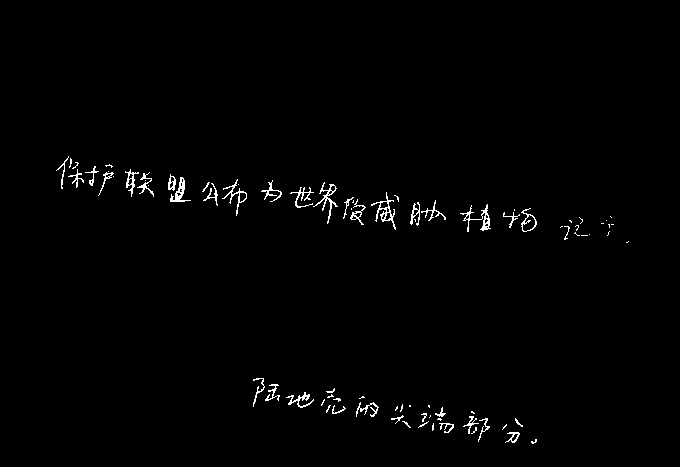 保护联盟公布为世界受威胁植物记
陆地壳的尖端部分。